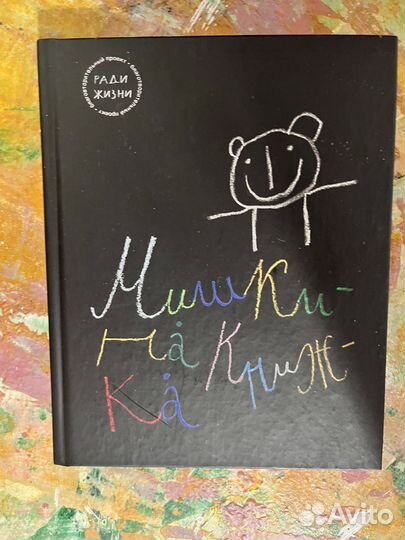 благотворительный проект - благотворительный проект -
РАДИ
ЖИЗНИ
Мишки-
на Книж-
ка
Avito